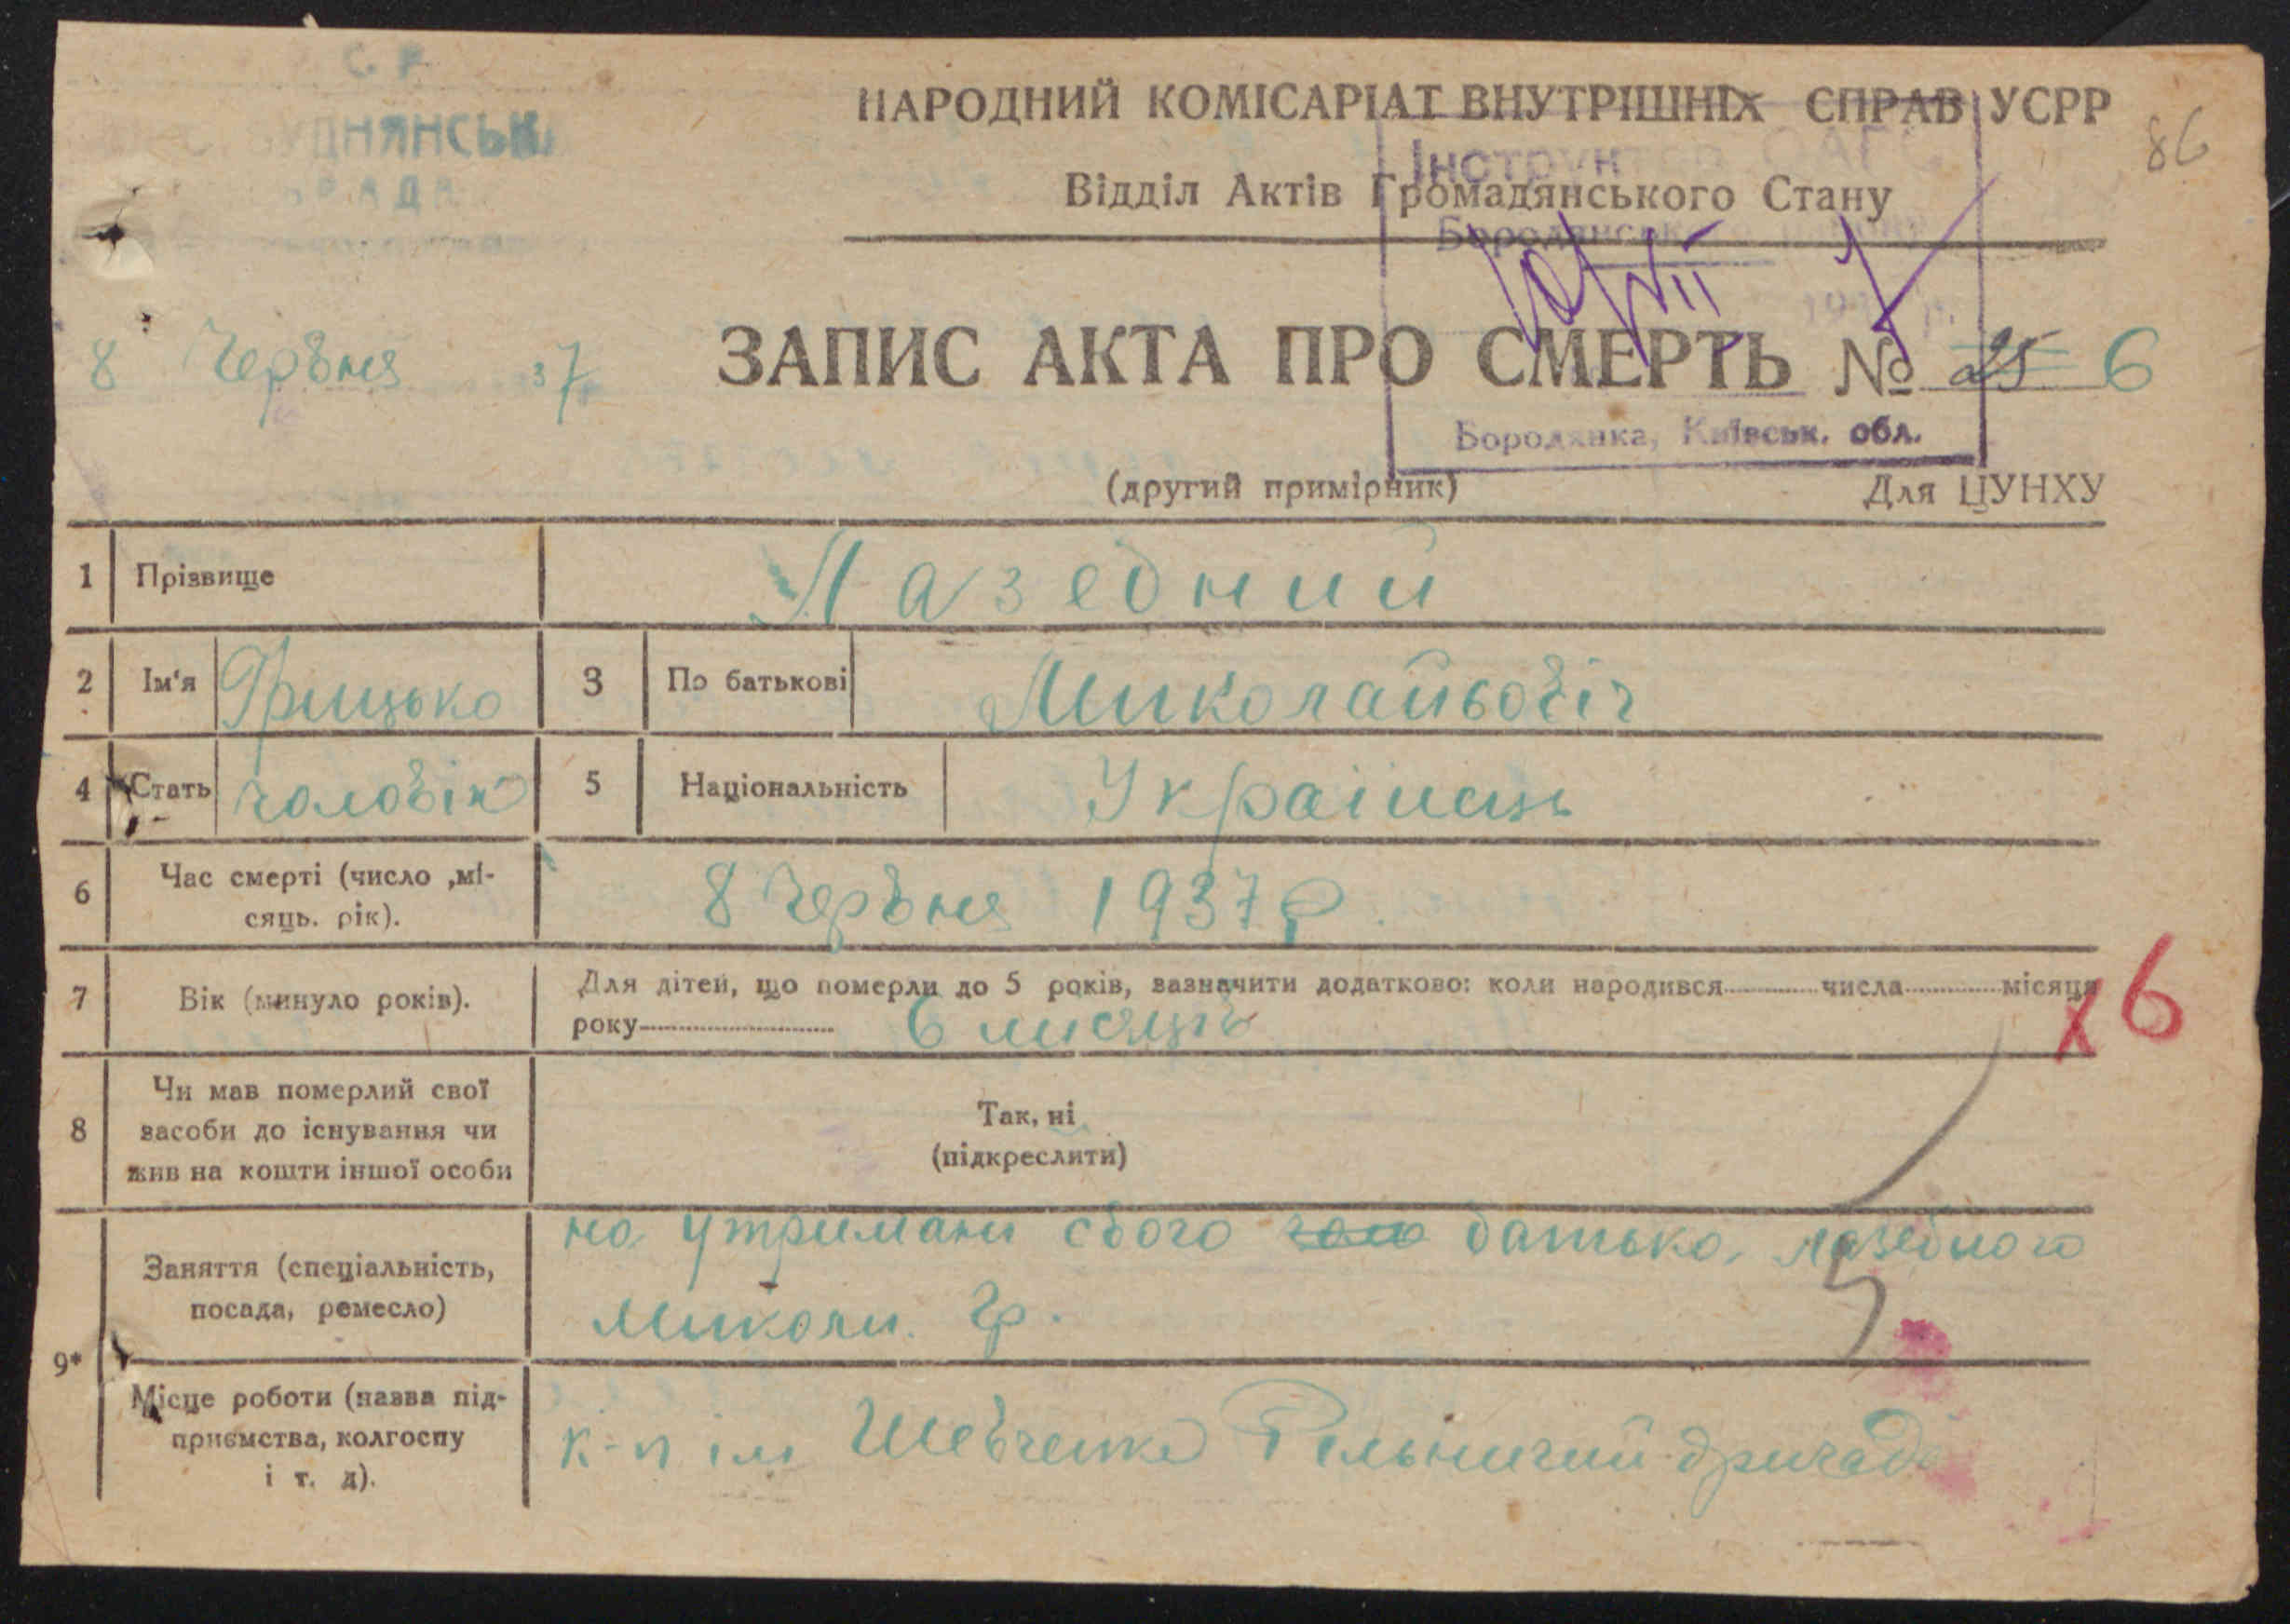 НАРОДНИЙ КОМІСАРІАТ ВНУТРІШНІХ СПРАВ УСРР
86
Відділ Актів Громадянського Стану
РАДА
8 Червня 37
ЗАПИС АКТА ПРО СМЕРТЬ № 25 6
Бородянка, Київськ. обл.
(другий примірник)
Для ЦУНХУ
1 Прізвище Лазебний
2 Ім'я Грицько 3 По батькові Миколайовіч
4 Стать чоловік 5 Національність Українець
6 Час смерті (число ,мі-
сяць. рік). 8 Червня 1937 р.
7 Вік (минуло років). Для дітей, що померли до 5 років, зазначити додатково: коли народився числа місяця
року 6 мисяців
х6
8 Чи мав померлий свої
засоби до існування чи
жив на кошти іншої особи
Так, ні
(підкреслити)
9* Заняття (спеціальність,
посада, ремесло)
на утримани свого батька, лазебного
Миколи Гр.
Місце роботи (назва під-
приємства, колгоспу
і т. д).
к-п ім Шевченка Рільничий бригаді